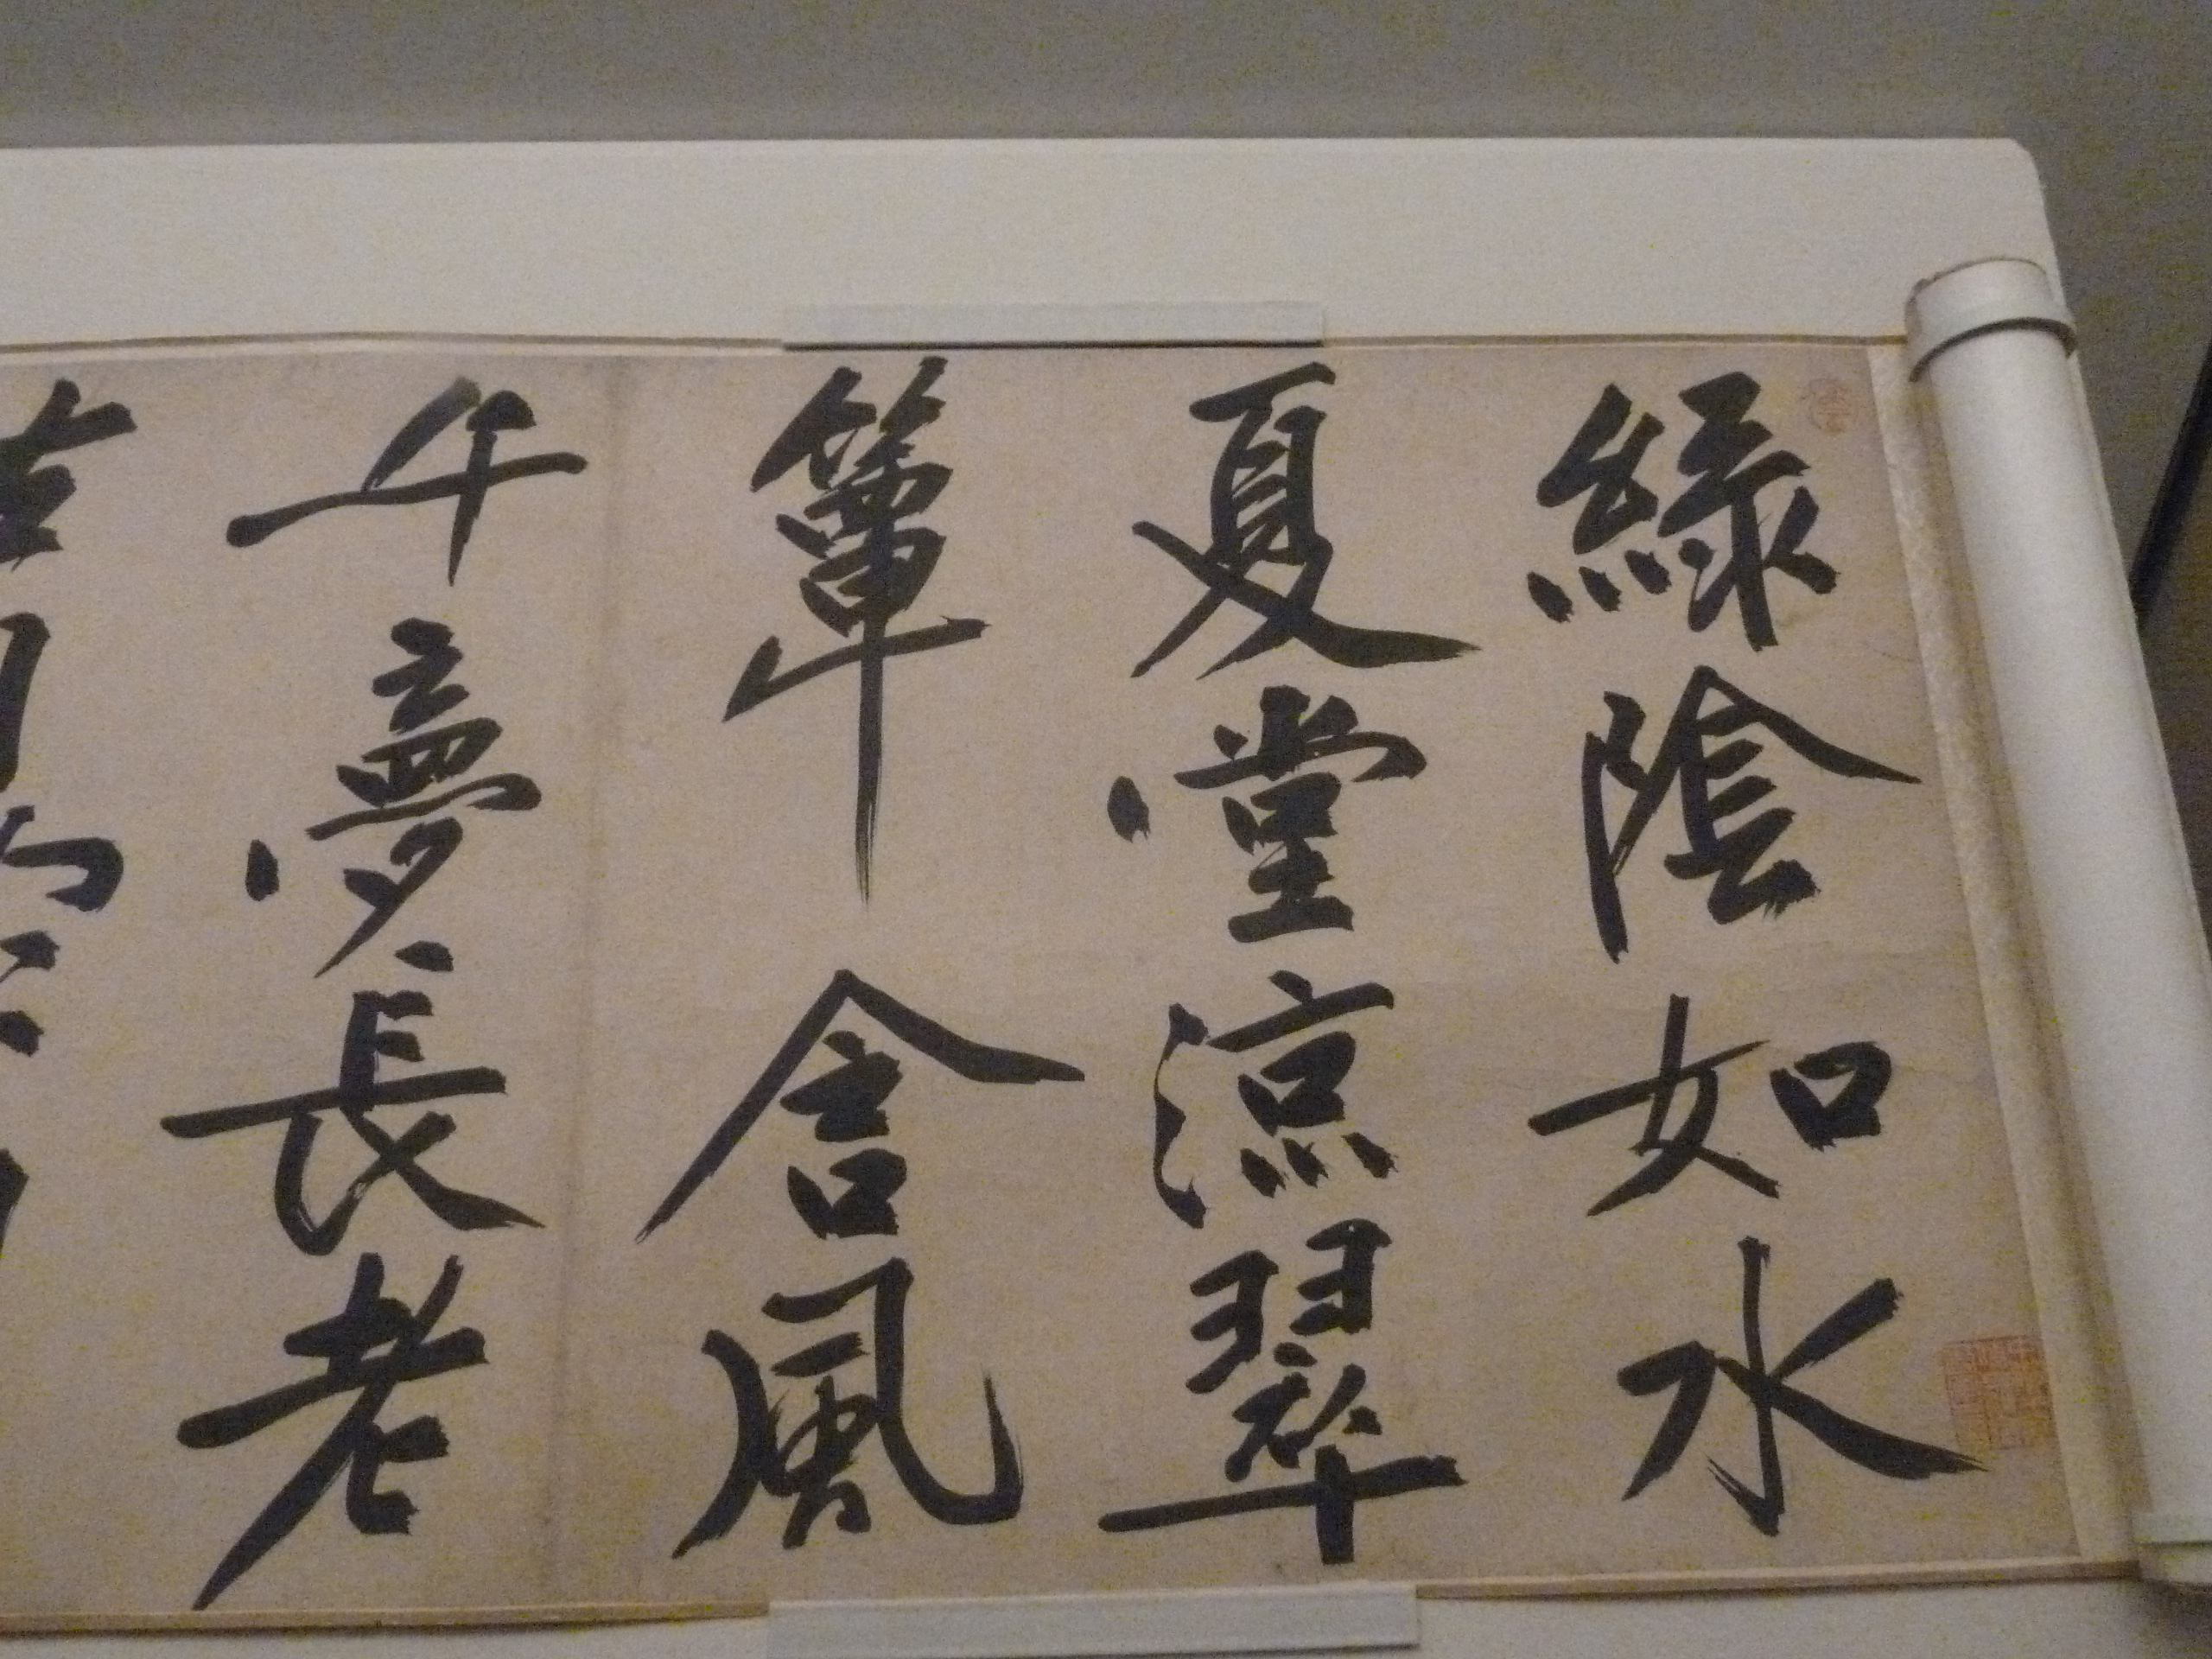 綠陰如水
夏堂涼翠
簟含風
午夢長老